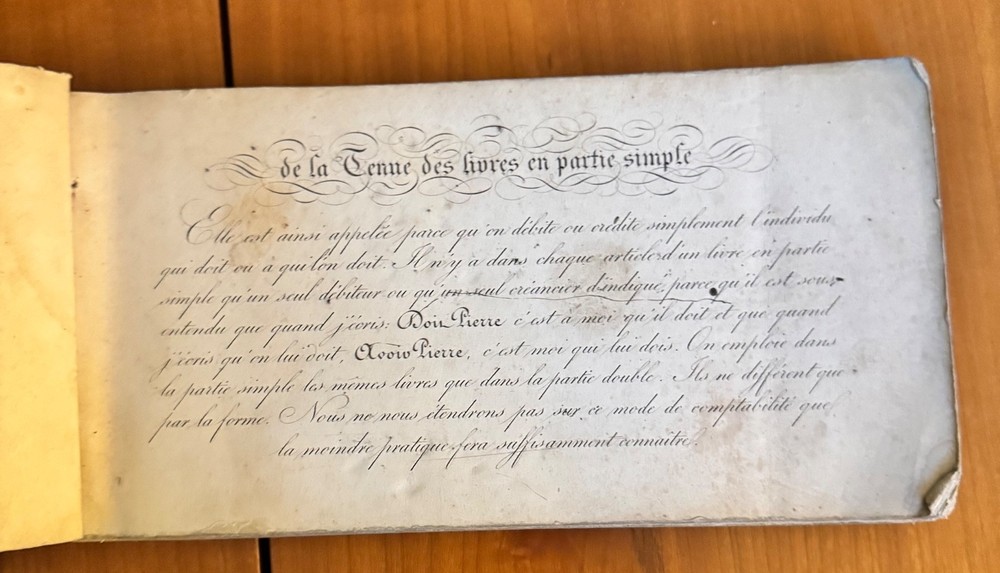 de la Tenue des livres en partie simple
Elle est ainsi appelée parce qu'on débite ou crédite simplement l'individu
qui doit ou a qui l'on doit. Il n'y a dans chaque article d'un livre en partie
simple qu'un seul débiteur ou qu'un seul créancier d'indiqué, parce qu'il est sous-
entendu que quand j'écris: Doit Pierre c'est à moi qu'il doit et que quand
j'écris qu'on lui doit, Avoir Pierre, c'est moi qui lui dois. On emploie dans
la partie simple les mêmes livres que dans la partie double. Ils ne diffèrent que
par la forme. Nous ne nous étendrons pas sur ce mode de comptabilité que
la moindre pratique fera suffisamment connaître.